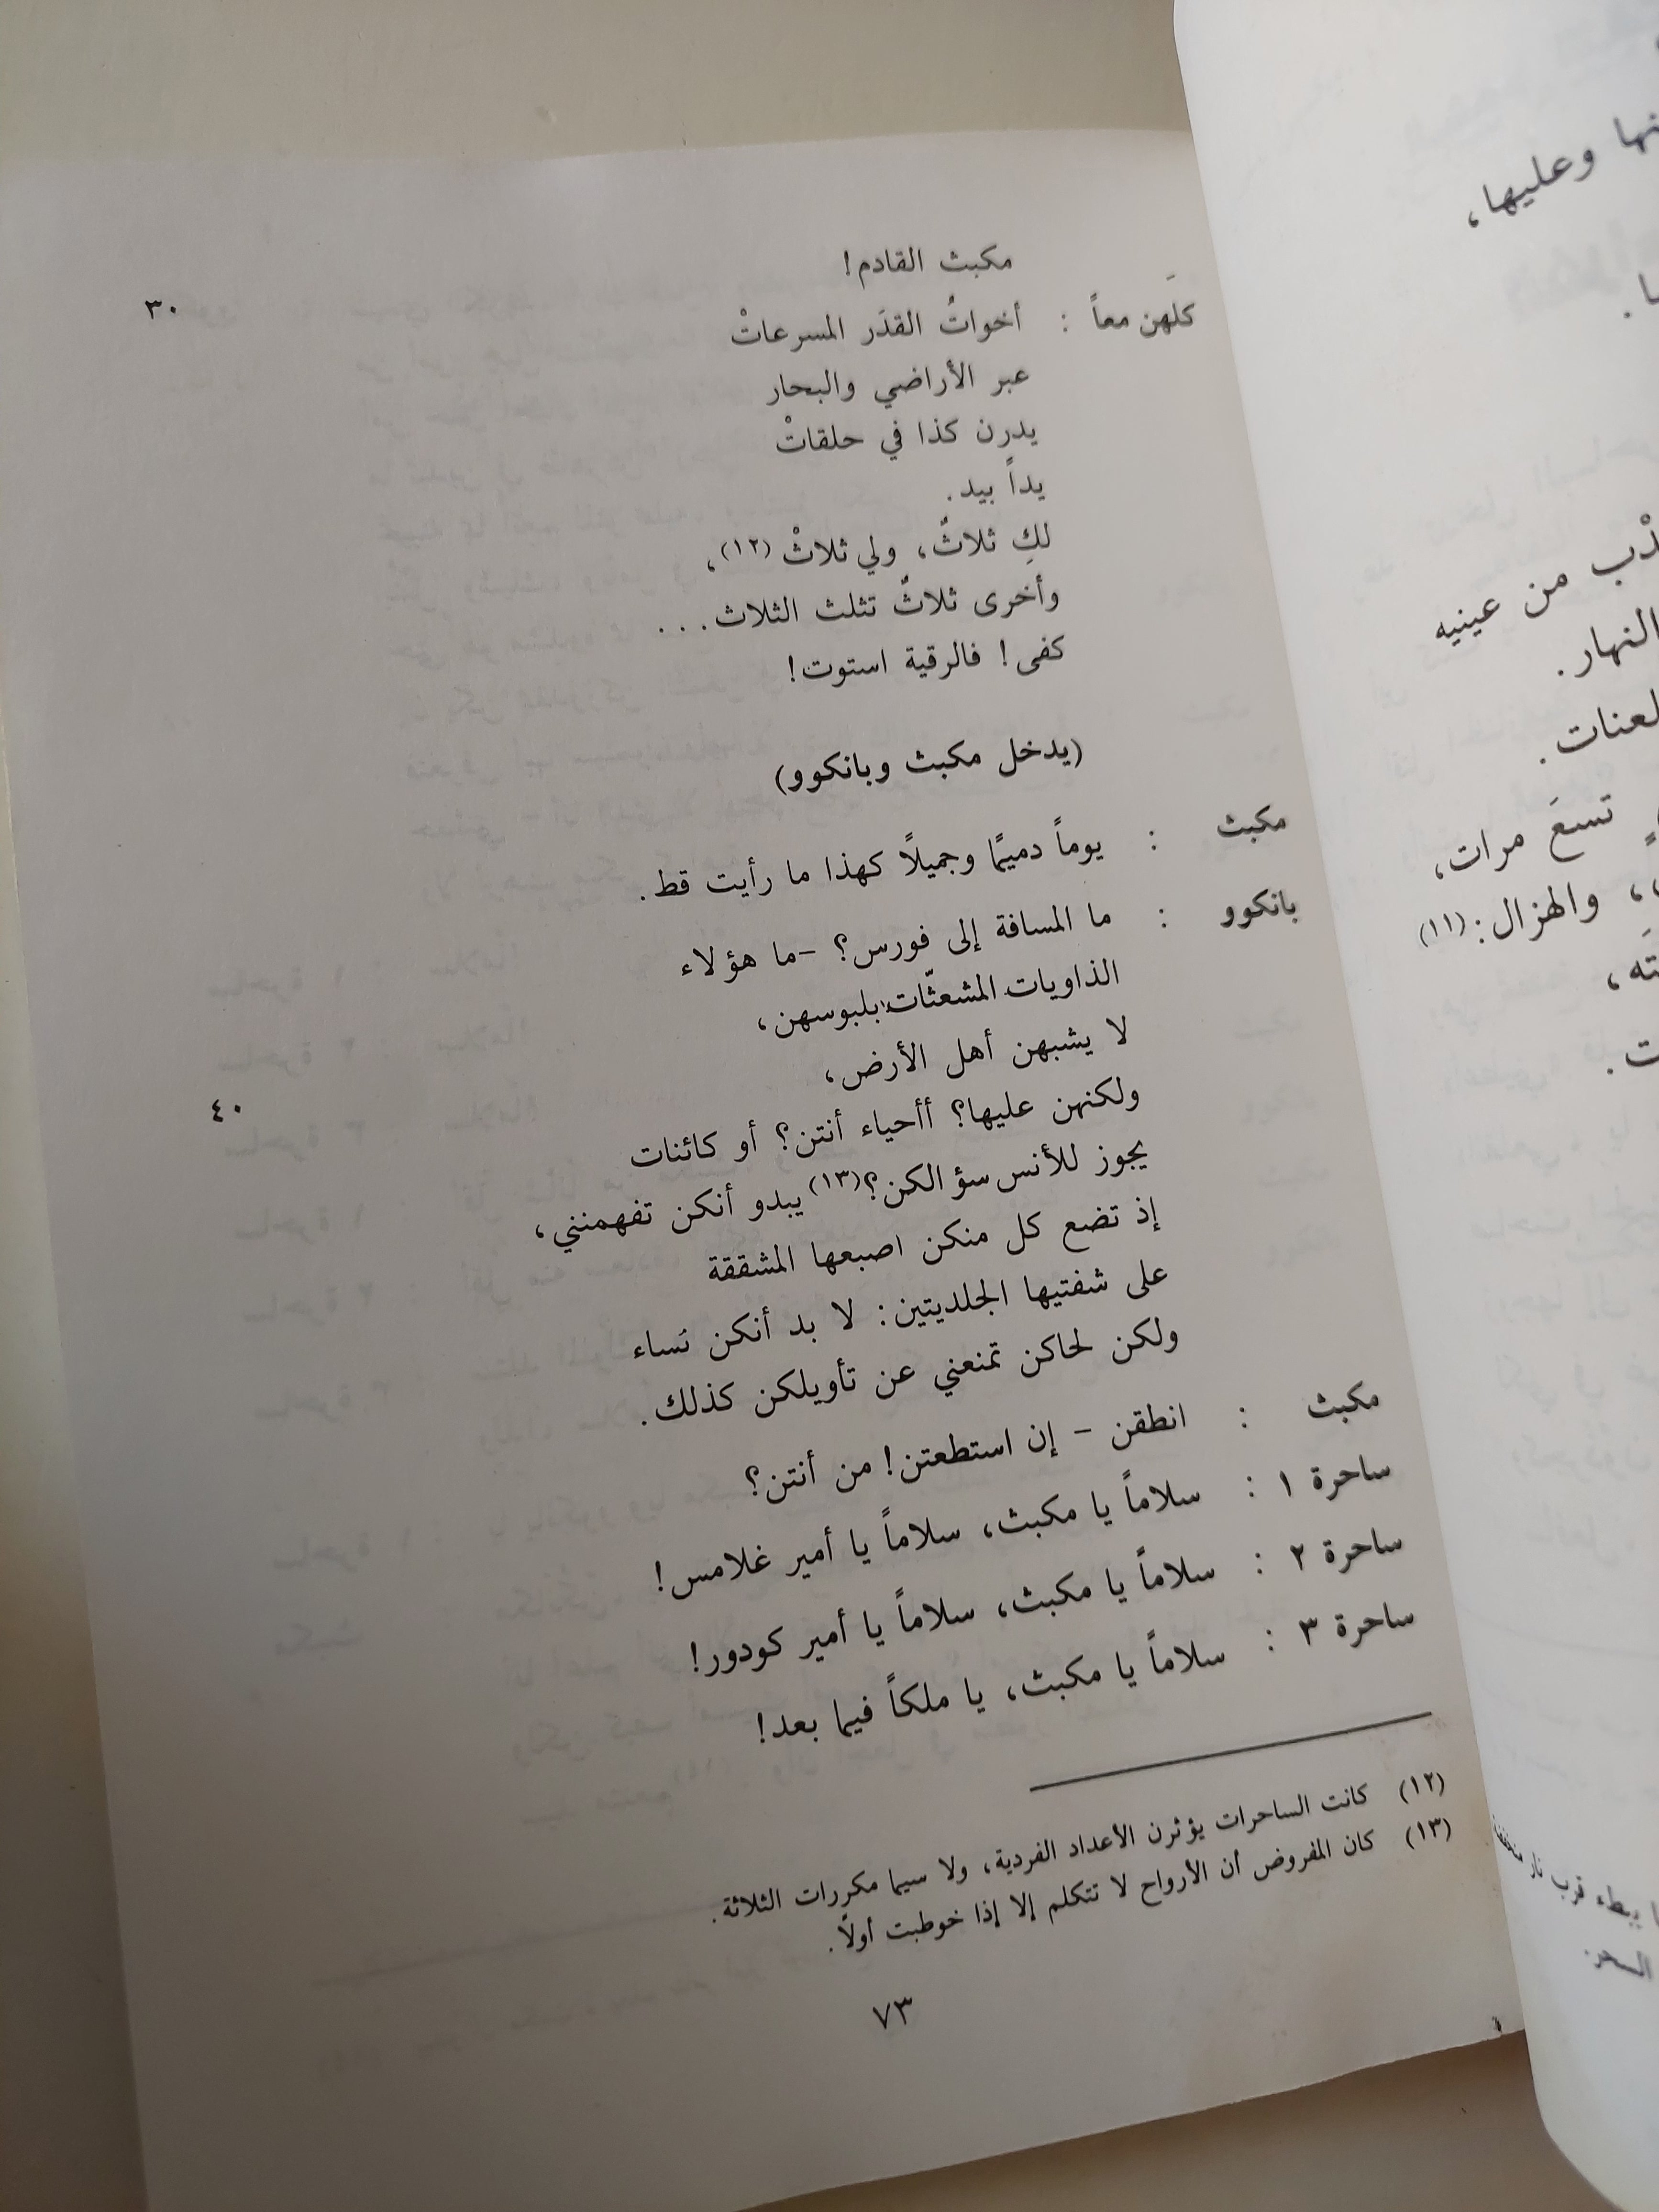 مكبث القادم!
كلَهن معاً : أخواتُ القدَر المسرعاتْ ٣٠
عبر الأراضي والبحار
يدرن كذا في حلقاتْ
يداً بيد.
لكِ ثلاثٌ، ولي ثلاثْ (١٢)،
وأخرى ثلاثٌ تثلث الثلاث...
كفى! فالرقية استوت!
(يدخل مكبث وبانكوو)
مكبث : يوماً دميمًا وجميلاً كهذا ما رأيت قط.
بانكوو : ما المسافة إلى فورس؟ -ما هؤلاء
الذاويات المشعثّات بلبوسهن،
لا يشبهن أهل الأرض،
ولكنهن عليها؟ أأحياء أنتن؟ أو كائنات ٤٠
يجوز للأنس سؤالكن؟(١٣) يبدو أنكن تفهمنني،
إذ تضع كل منكن اصبعها المشققة
على شفتيها الجلديتين: لا بد أنكن نساء
ولكن لحاكن تمنعني عن تأويلكن كذلك.
مكبث : انطقن - إن استطعتن! من أنتن؟
ساحرة ١ : سلاماً يا مكبث، سلاماً يا أمير غلامس!
ساحرة ٢ : سلاماً يا مكبث، سلاماً يا أمير كودور!
ساحرة ٣ : سلاماً يا مكبث، يا ملكاً فيما بعد!
(١٢) كانت الساحرات يؤثرن الأعداد الفردية، ولا سيما مكررات الثلاثة.
(١٣) كان المفروض أن الأرواح لا تتكلم إلا إذا خوطبت أولاً.
٧٣
وعليها،
من عينيه
النهار.
تسعَ مرات،
والهزال: (١١)
ببطء قرب نار
السحر.